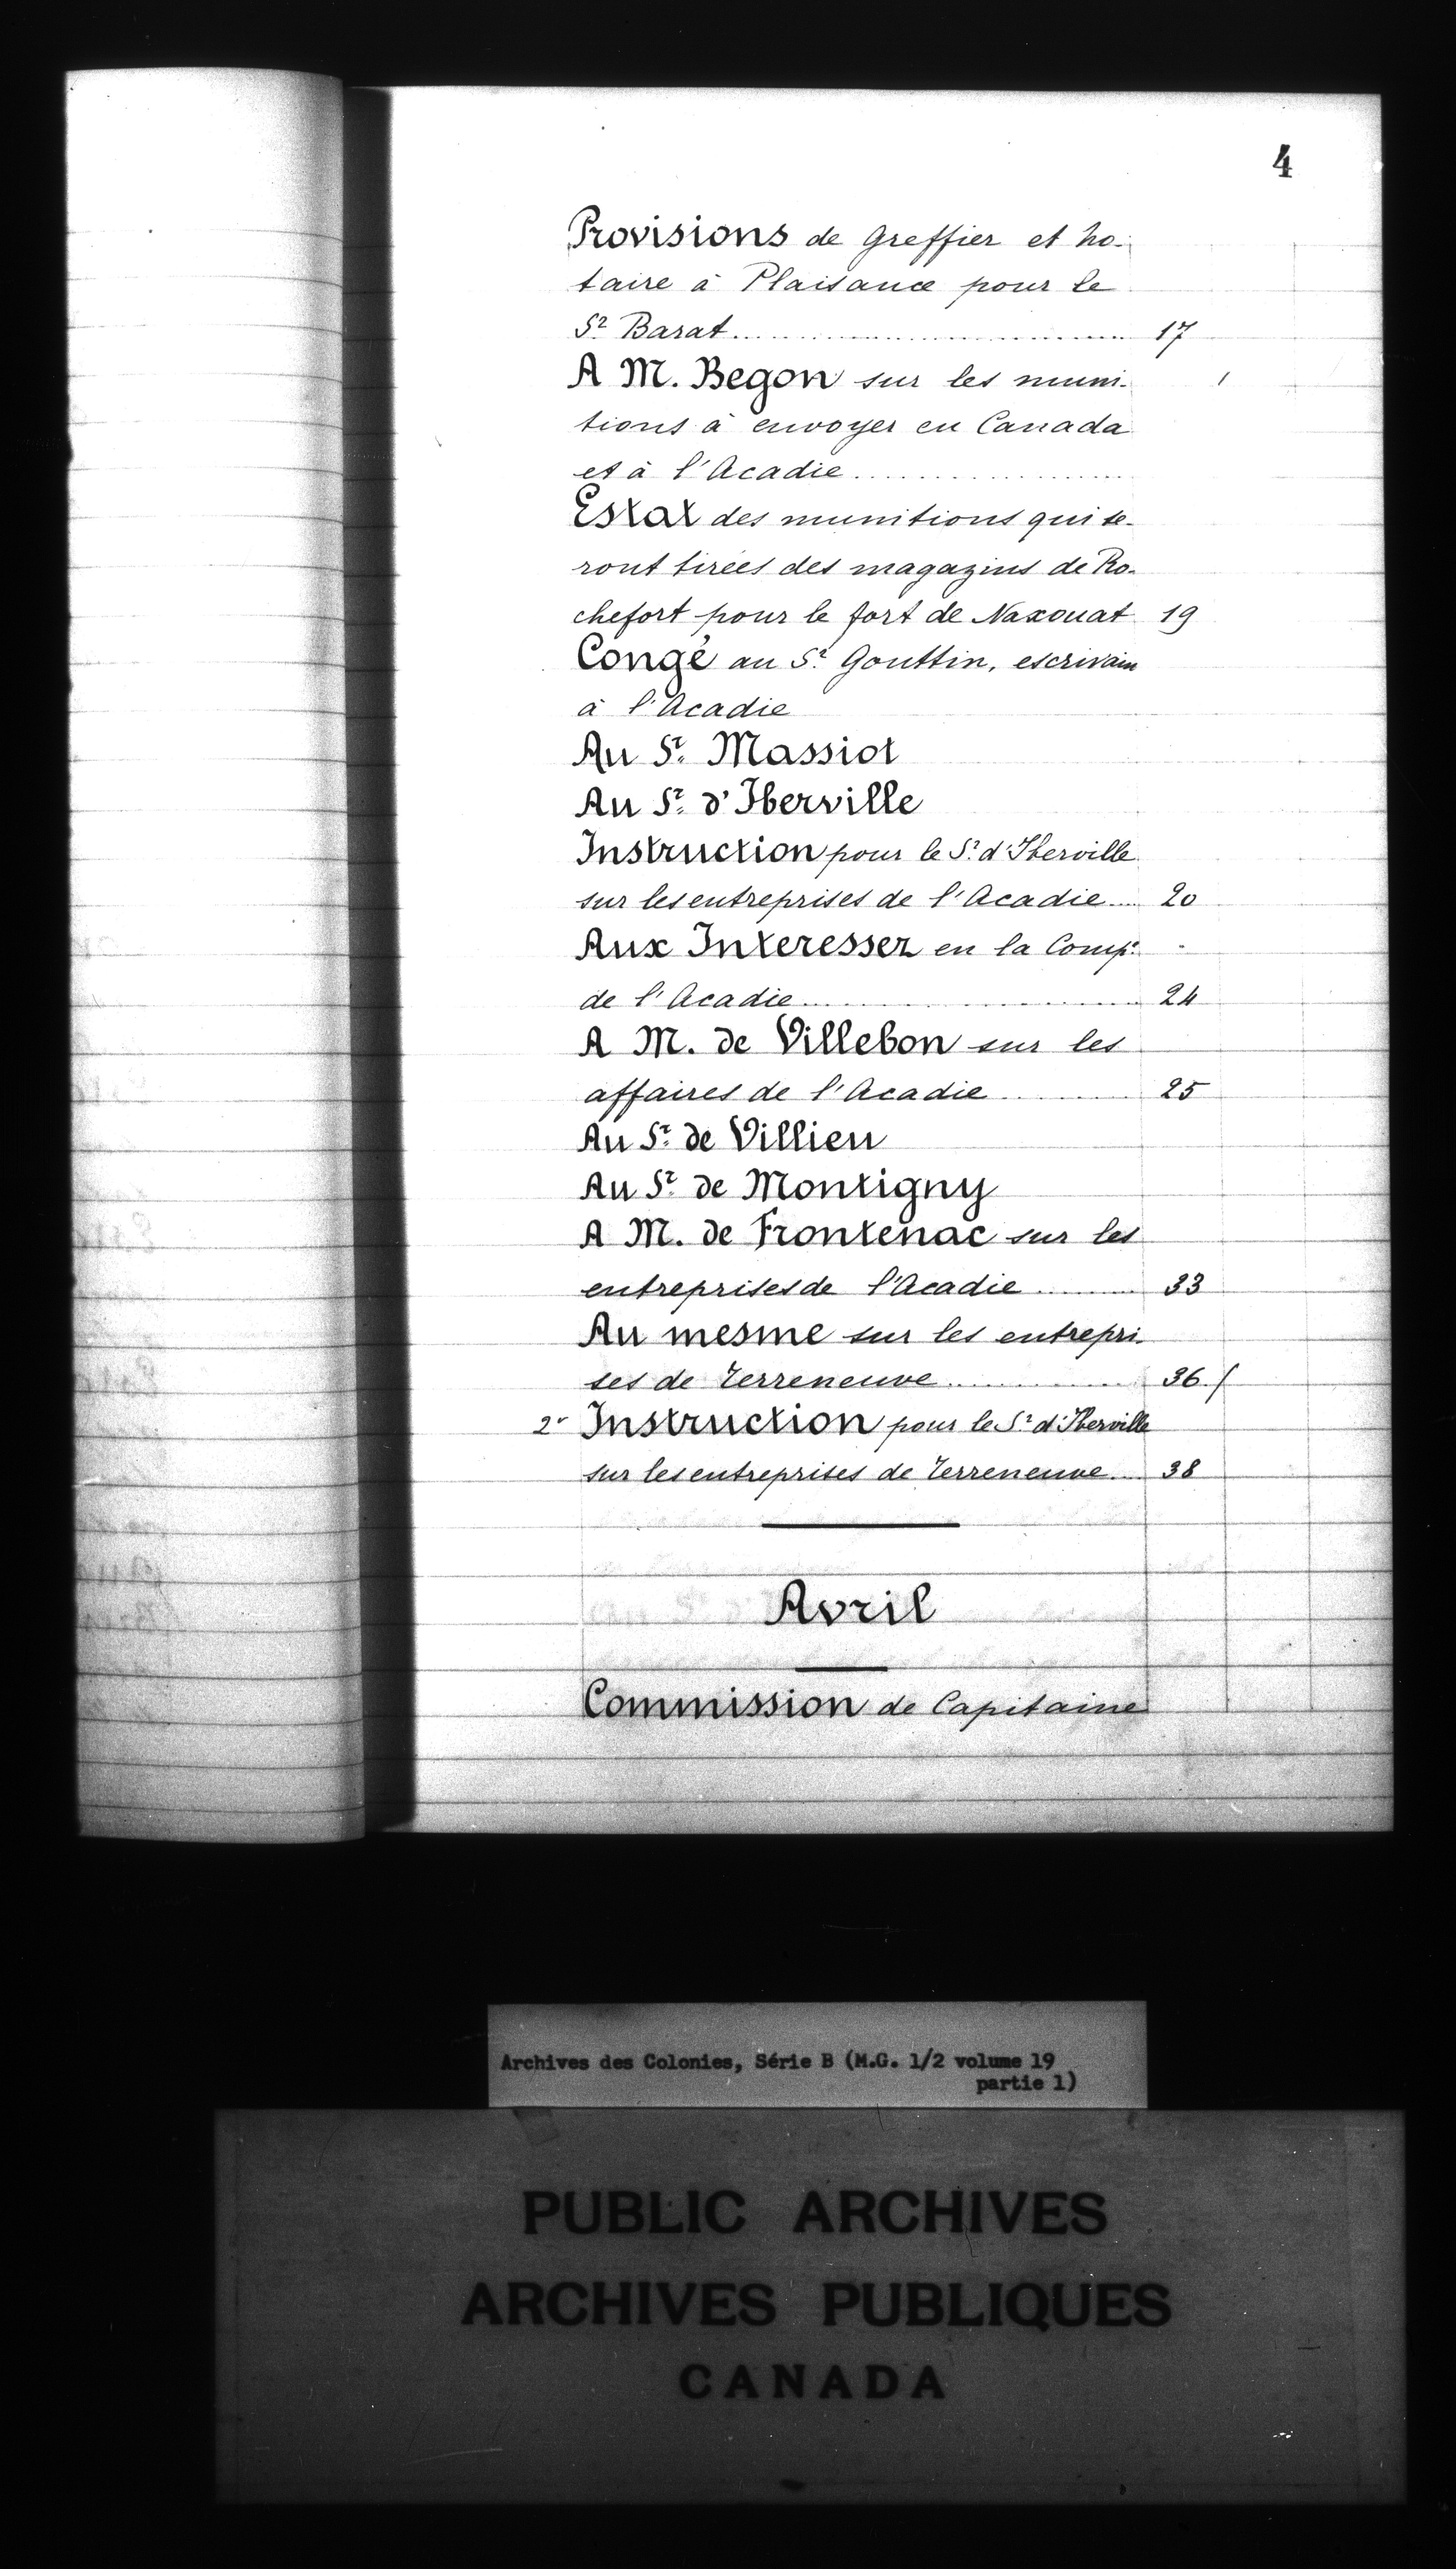 4
Provisions de Greffier et no-
taire à Plaisance pour le
Sr. Barat 17
A M. Begon sur les muni-
tions à envoyer en Canada
et à l'Acadie
Estat des munitions qui se-
ront tirées des magazins de Ro-
chefort pour le fort de Naxouat 19
Congé au Sr. Gouttin, escrivain
à l'Acadie
Au Sr. Massiot
Au Sr. d'Iberville
Instruction pour le Sr. d'Iberville
sur les entreprises de l'Acadie 20
Aux Interessez en la Compe.
de l'Acadie 24
A M. de Villebon sur les
affaires de l'Acadie 25
Au Sr. de Villieu
Au Sr. de Montigny
A M. de Frontenac sur les
entreprises de l'Acadie 33
Au mesme sur les entrepri-
ses de Terreneuve 36
2e Instruction pour le Sr. d'Iberville
sur les entreprises de Terreneuve 38
Avril
Commission de Capitaine
Archives des Colonies, Série B (M.G. 1/2 volume 19
partie 1)
PUBLIC ARCHIVES
ARCHIVES PUBLIQUES
CANADA